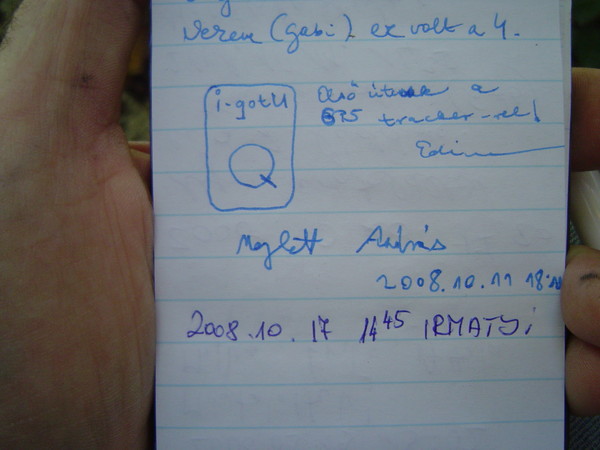 (Gabi). ez volt a 4.
i-gotU
Első utunk a
GPS tracker-rel!
Edina
Meglett András
2008.10.11 18:
2008.10.17 14 45 IRMATYI